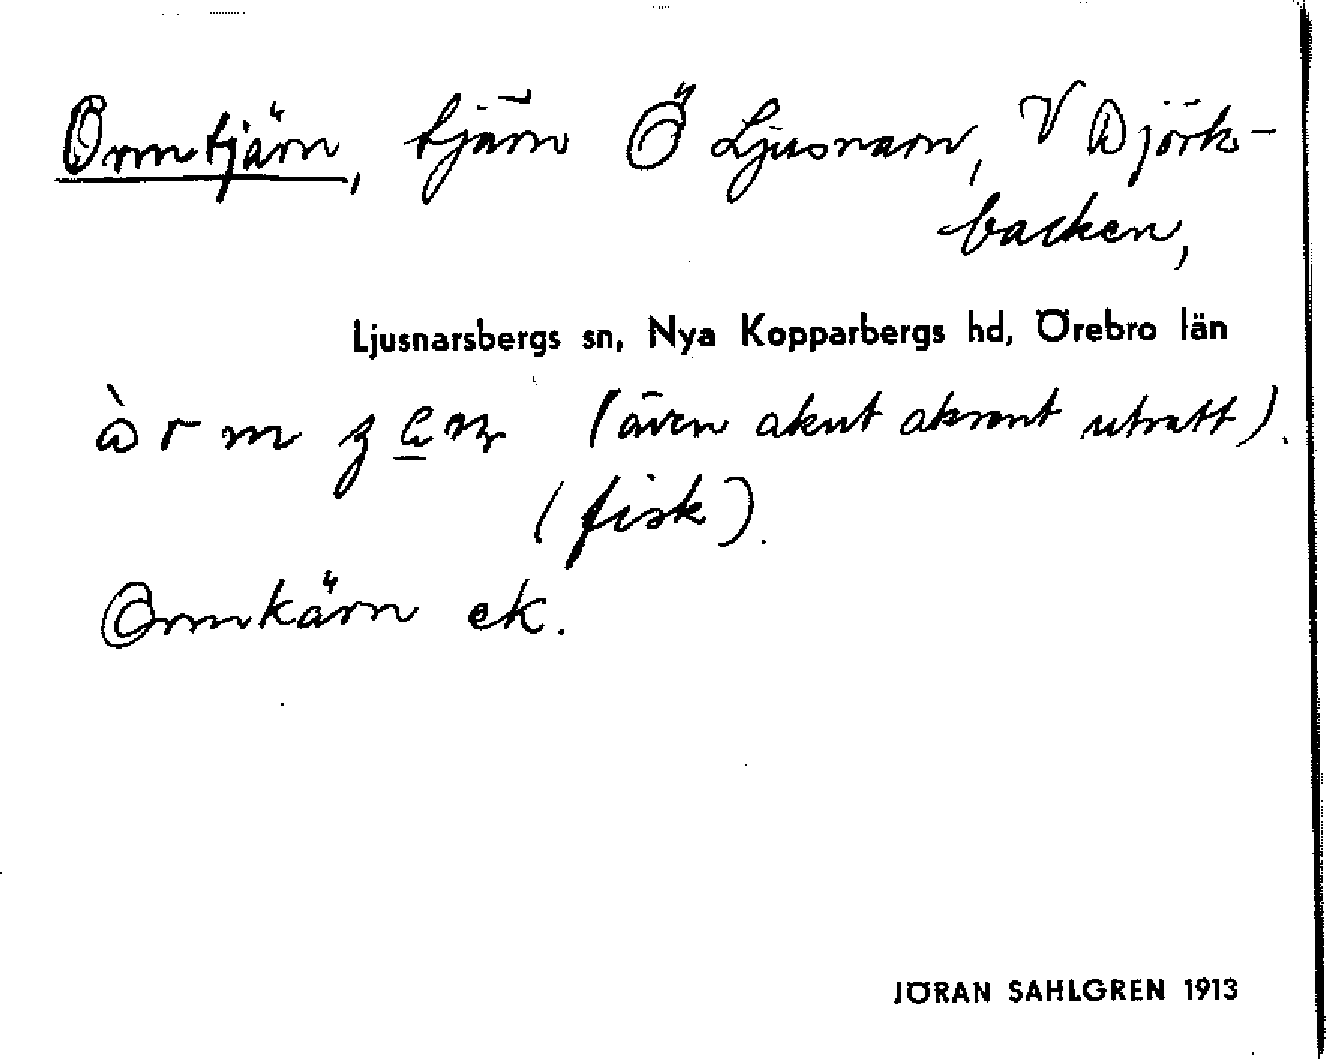 Ormtjärn, tjärn Ö Ljusnarn, V Björk-
backen,
Ljusnarsbergs sn, Nya Kopparbergs hd, Örebro län
(även akut aksent uttalt).
(fisk).
Ormkärn ek.
JÖRAN SAHLGREN 1913